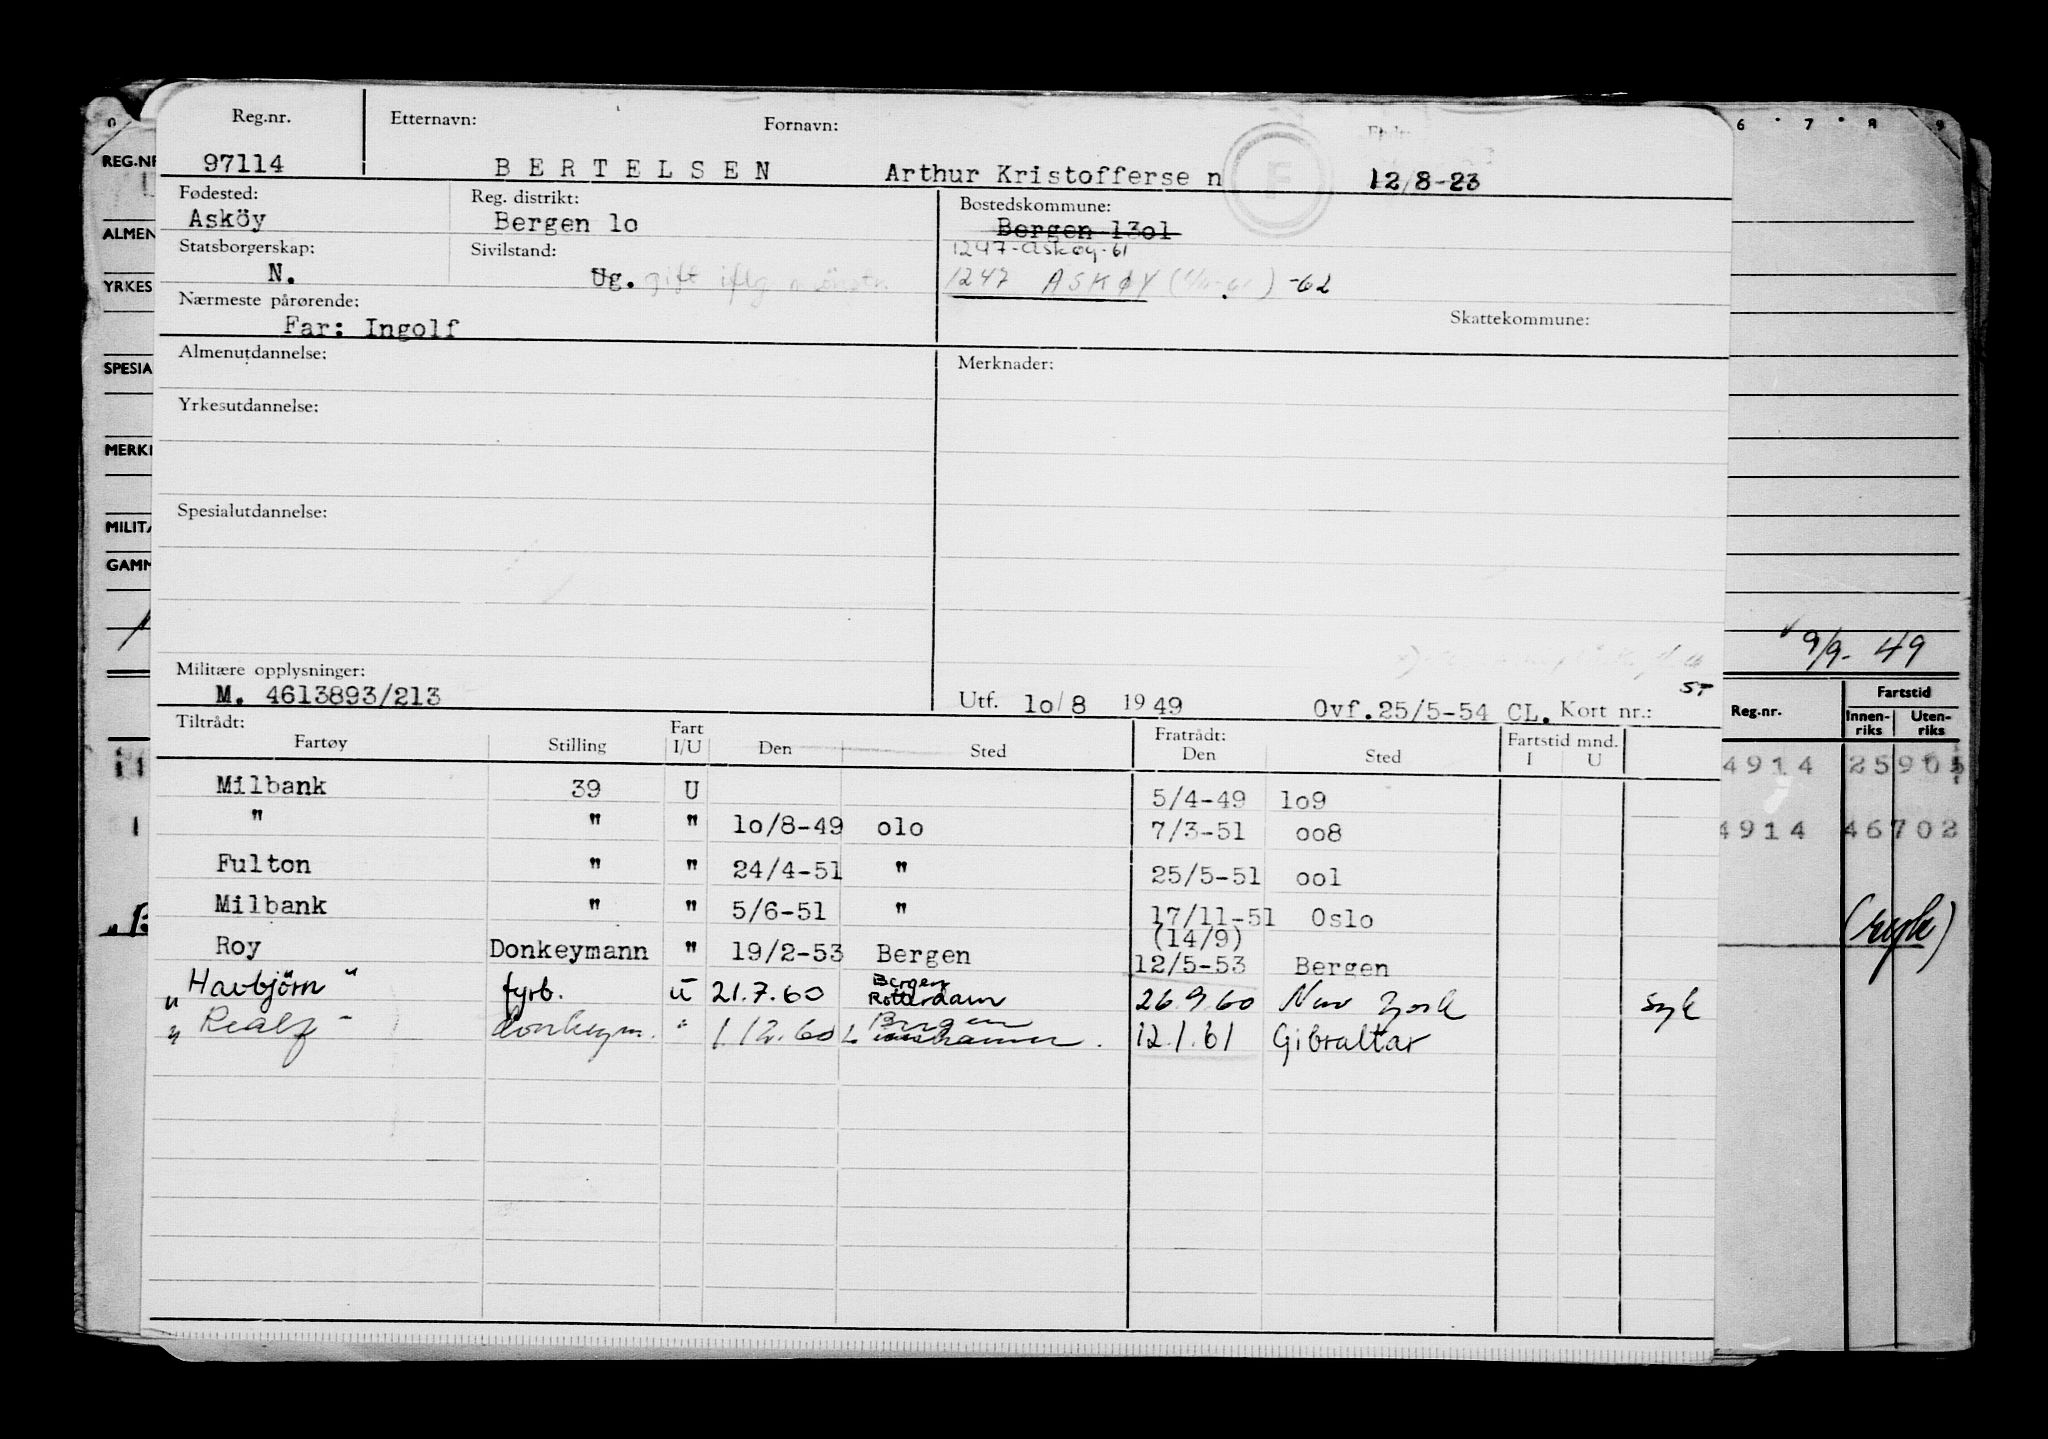 Reg.nr. Etternavn: Fornavn:
97114 BERTELSEN Arthur Kristofferse n 12/8-23
F
Fødested: Reg. distrikt: Bostedskommune:
Asköy Bergen lo Bergen 13ol
Statsborgerskap: Sivilstand: 1247-Askøy-61
N. Ug. gift iflg mønstr. 1247 ASKØY -62
Nærmeste pårørende:
Far: Ingolf Skattekommune:
Almenutdannelse: Merknader:
Yrkesutdannelse:
Spesialutdannelse:
Militære opplysninger:
M. 4613893/213 Utf. lo/8 1949 Ovf.25/5-54 CL. Kort nr.: 5-
Tiltrådt: Fratrådt:
Fartøy Stilling Fart I/U Den Sted Den Sted Fartstid mnd. I U
Milbank 39 U 5/4-49 lo9
" " " lo/8-49 olo 7/3-51 oo8
Fulton " " 24/4-51 " 25/5-51 ool
Milbank " " 5/6-51 " 17/11-51 Oslo
(14/9)
Roy Donkeymann " 19/2-53 Bergen 12/5-53 Bergen
"Havbjörn" fyrb. U 21.7.60 Bergen Rotterdam 26.9.60 New York syk
"Realf" donkeym. " 1.12.60 Bergen 12.1.61 Gibraltar
REG.NR
ALMEN
YRKES
SPESIA
MERK
MILITÆ
GAMM
6 7 8 9
9/9- 49
Reg.nr. Fartstid
Innen-riks Uten-riks
4914 25905
4914 46702
(syk)